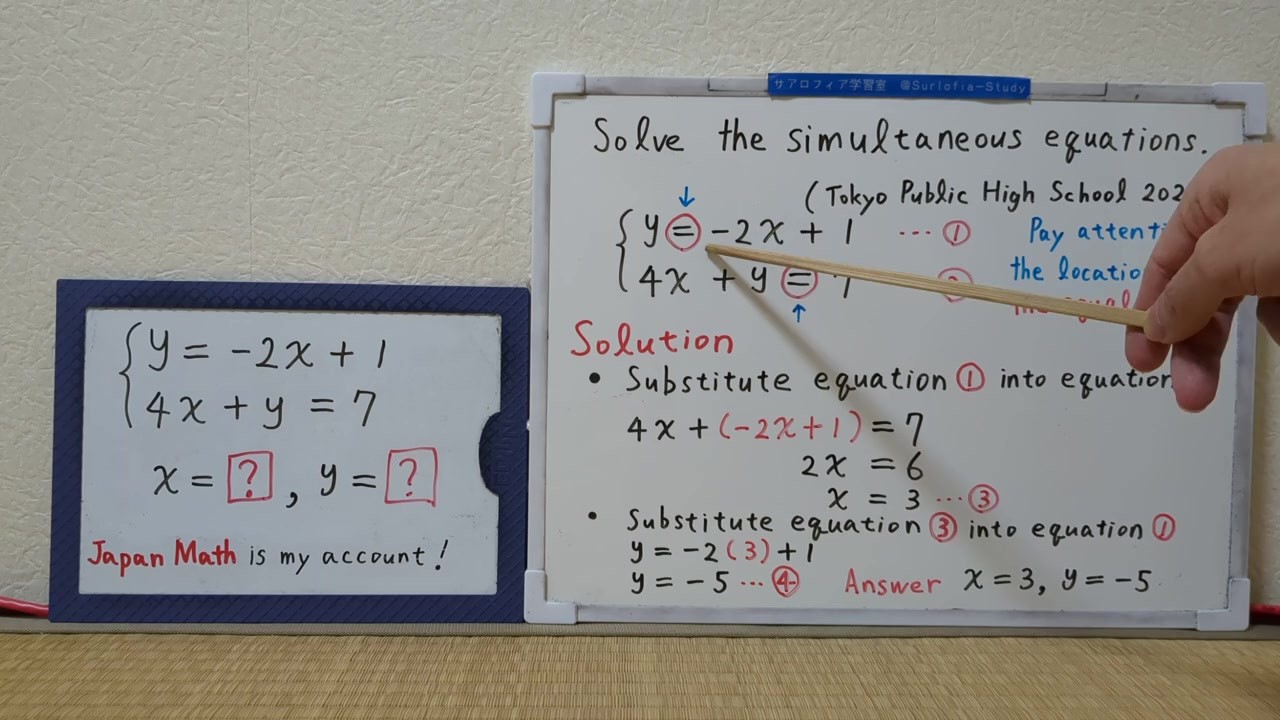 y = -2x + 1
4x + y = 7
x = ?, y = ?
Japan Math is my account!
サアロフィア学習室 @Surlofia-Study
Solve the simultaneous equations.
(Tokyo Public High School
y = -2x + 1 … ① Pay
4x + y = the
Solution
• Substitute equation ① into
4x + (-2x+1) = 7
2x = 6
x = 3 … ③
• Substitute equation ③ into equation ①
y = -2(3)+1
y = -5 … ④ Answer x = 3, y = -5